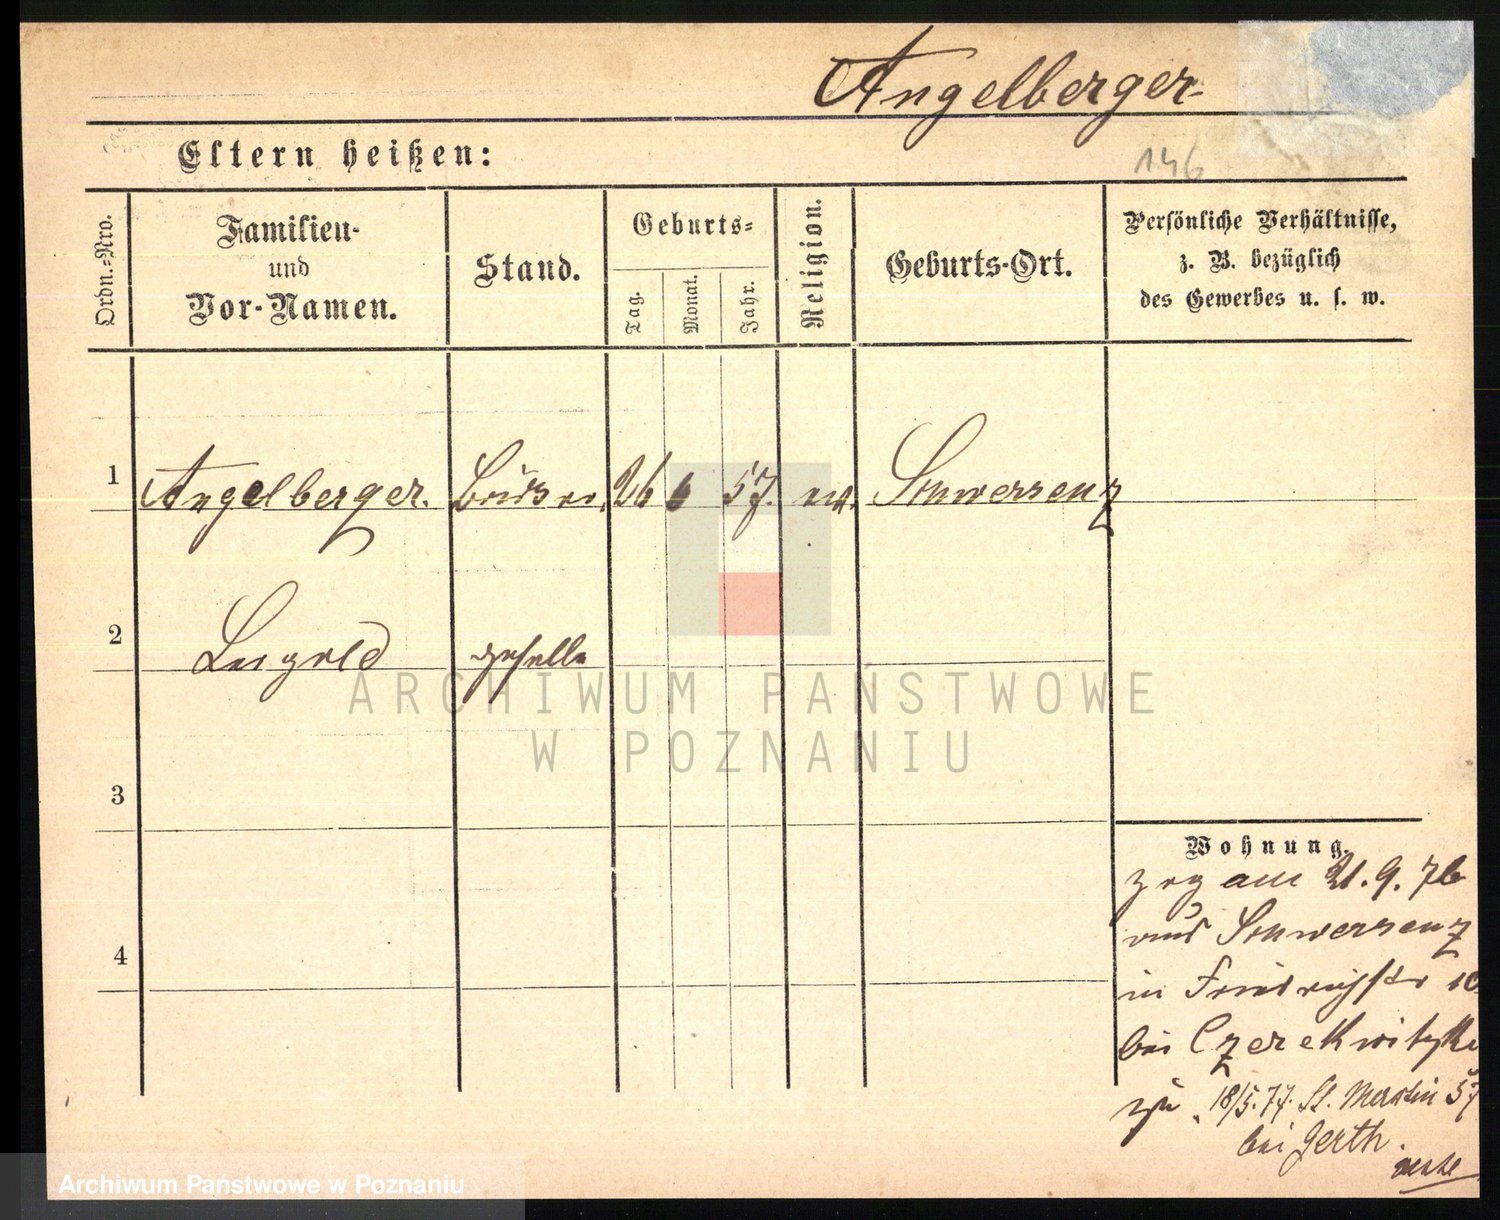 Angelberger
Eltern heißen:
146
Ordn.-Nro.
Familien-
und
Vor-Namen.
Stand.
Geburts-
Tag.
Monat.
Jahr.
Religion.
Geburts-Ort.
Persönliche Verhältnisse,
z. B. bezüglich
des Gewerbes u. s. w.
1 Angelberger. 26 6 57. Schwersenz
2 Leopold geselle
3
4
Wohnung.
zog am 21.9.76
aus Schwersenz
in Friedrichstr 10
bei Czerekwitzki
18/5.77. St. Martin 57
bei Gerth.
ARCHIWUM PAŃSTWOWE
W POZNANIU
Archiwum Państwowe w Poznaniu